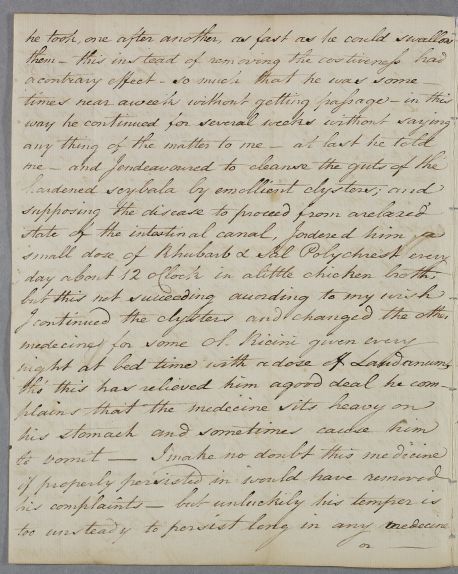 he took, one after another, as fast as he could swallow
them – this instead of removing the costiveness had
a contrary effect – so much that he was some
times near a week without getting passage – in this
way he continued for several weeks without saying
any thing of the matter to me – at last he told
me – and I endeavoured to cleanse the guts of the
hardened scybala by emollient clysters; and
supposing the disease to proceed from a relaxed
state of the intestinal canal I ordered him a
small dose of Rhubarb & Sal Polychrest every
day about 12 oClock in a little chicken broth
but this not succeeding according to my wish
I continued the clysters and changed the other
medecines for some Ol. Ricini given every
night at bed time with a dose of Laudanum,
tho' this has relieved him a good deal he com-
plains that the medecine sits heavy on
his stomach and sometimes cause him
to vomit — I make no doubt this medicine
if properly persisted in would have removed
his complaints – but unluckily his temper is
too unsteady to persist long in any medecine
or